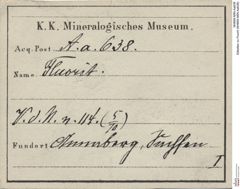 K. K. Mineralogisches Museum.
Acq. Post A. a. 638.
Name Fluorit.
V. d. N. n. 114. (5/10)
Fundort Annaberg, Sachsen
I